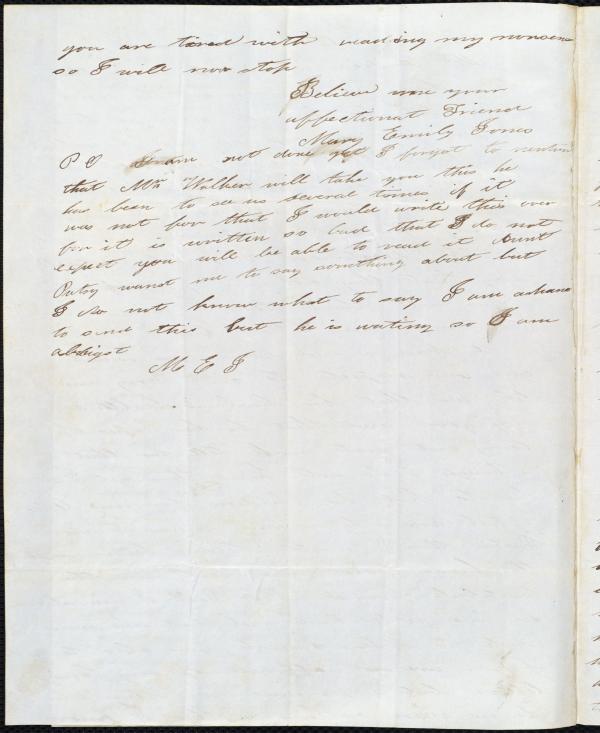 you are tired with reading my nonsens
so I will now stop
Believe me your
affectionat Friend
Mary Emily Jones
P S I am not done yet I forgot to mention
that Mr Walker will take you this he
has been to see us several times if it
was not for that I would write this over
for it is written so bad that I do not
expect you will be able to read it Aunt
Patsy wanst me to say something about but
I do not know what to say I am asham
to send this but he is waiting so I am
abligst
M E J